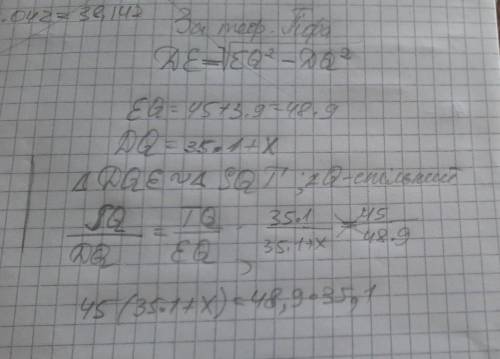 .042=39,142
За теор. Піфа
DE=√EQ²-DQ²
EQ=45+3.9=48.9
DQ=35.1+x
ΔDQE~ΔSQT; ∠Q-спільний
SQ/DQ = TQ/EQ ; 35.1/35.1+x = 45/48.9
45(35.1+x)=48,9·35,1